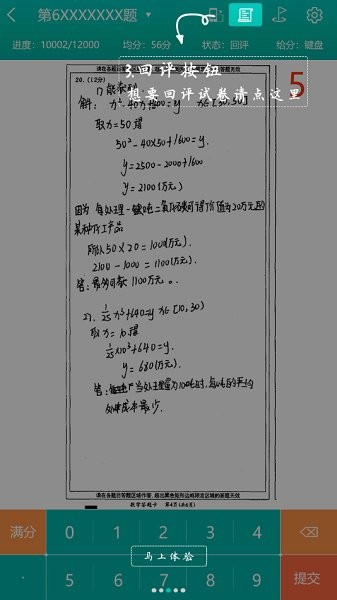 第6XXXXXXX题
进度：10002/12000 均分：56分 状态：回评 给分：键盘
请在各题目答题区域内作答，超出黑色矩形边框限定区域的答案无效
20.（12分）
5
3.回评按钮
想要回评试卷请点这里
解：x²-40x+1600=y x∈[30,50]
取x=50得
50²-40×50+1600=y.
y=2500-2000+1600
y=2100(万元)
因为 每处理一吨二氧化碳可得价值为20万元的
某种化工产品
所以 50×20=1000(万元).
2100-1000=1100(万元).
答：最多亏损1100万元。
2).
1/25 x³+640=y x∈[10,30)
取x=10得
1/25×10³+640=y.
y=680(万元).
答：当处理量为10吨时，每吨的平均
处理成本最少.
请在各题目答题区域作答，超出黑色矩形边框限定区域的答案无效
数学答题卡 第4页(共6页)
满分 0 1 2 3 4
马上体验
· 5 6 7 8 9 提交